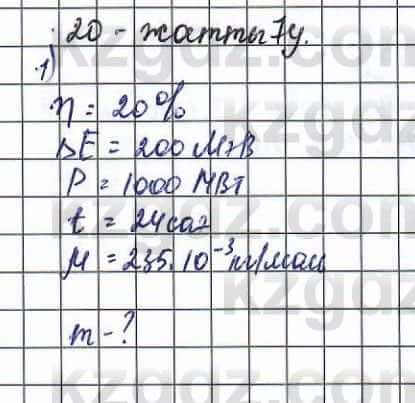 20 - жаттығу.
1)
η = 20%
ΔE = 200 МэВ
P = 1000 МВт
t = 24 сағ
M = 235·10⁻³ кг/моль
m - ?
kzgdz.com